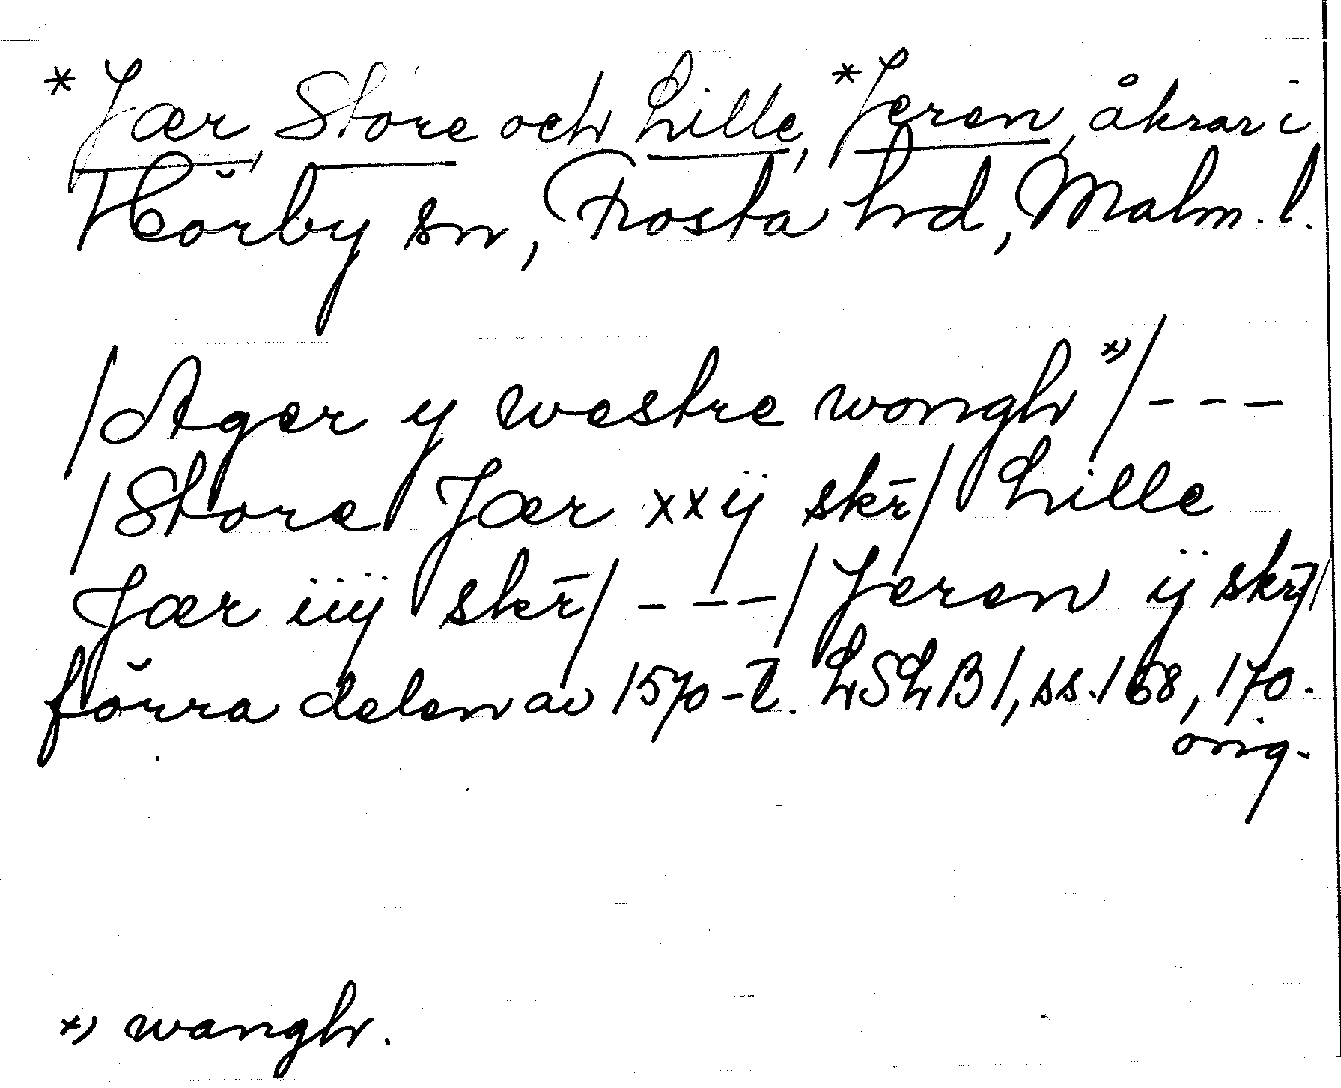 *Jær, Store och Lille, *Jeren, åkrar i
Hörby sn, Frosta hd, Malm. l.
/Ager y westre wongh *)/ - - -
/Store Jær xxij skr̄/ Lille
Jær iiij skr̄/ - - - / Jeren ij skr̄/
förra delen av 1570-t. LSLB 1, ss. 168, 170.
orig.
*) wangh.